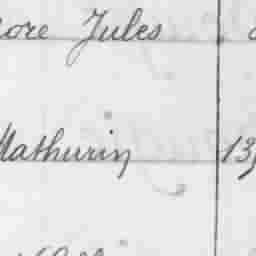 ore Jules
Mathurin 13